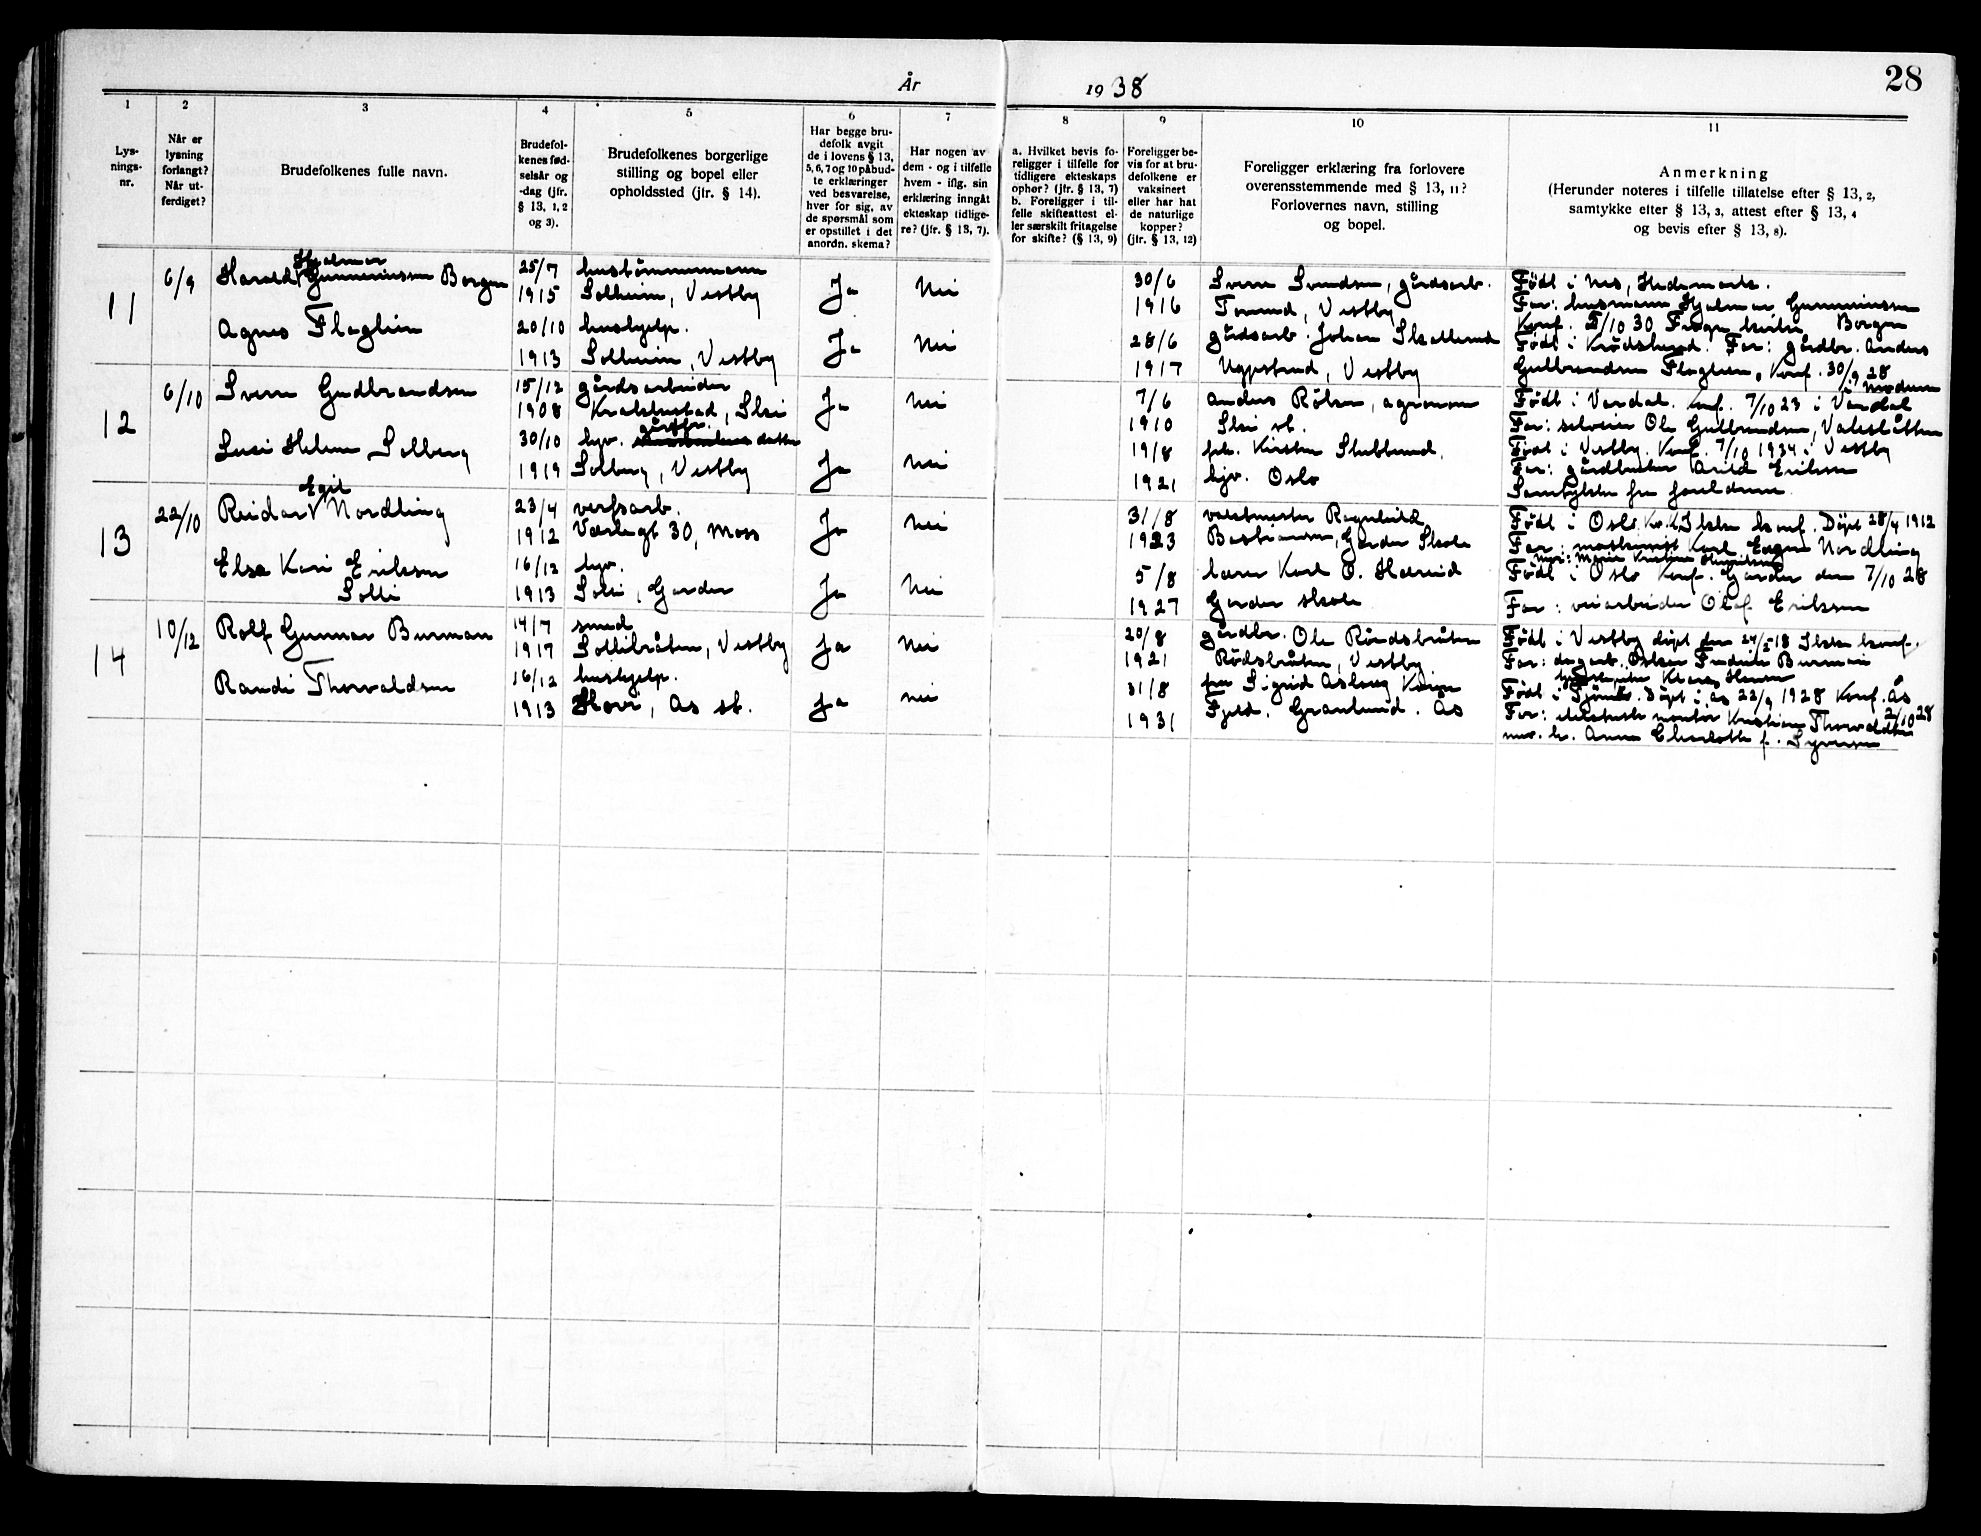 År 1938
28
1
2
3
4
5
6
7
8
9
10
11
Lys-
nings-
nr.
Når er
lysning
forlangt?
Når ut-
ferdiget?
Brudefolkenes fulle navn.
Brudefol-
kenes fød-
selsår og
-dag (jfr.
§ 13, 1, 2
og 3).
Brudefolkenes borgerlige
stilling og bopel eller
opholdssted (jfr. § 14).
Har begge bru-
defolk avgit
de i lovens § 13,
5, 6, 7 og 10 påbud-
te erklæringer
ved besvarelse,
hver for sig, av
de spørsmål som
er opstillet i det
anordn. skema?
Har nogen av
dem - og i tilfelle
hvem - iflg. sin
erklæring inngåt
ekteskap tidlige-
re? (jfr. § 13, 7).
a. Hvilket bevis fo-
religger i tilfelle for
tidligere ekteskaps
ophør? (jfr. § 13, 7)
b. Foreligger i til-
felle skifteattest el-
ler særskilt fritagelse
for skifte? (§ 13, 9)
Foreligger be-
vis for at bru-
defolkene er
vaksinert
eller har hat
de naturlige
kopper?
(jfr. § 13, 12)
Foreligger erklæring fra forlovere
overensstemmende med § 13, 11?
Forlovernes navn, stilling
og bopel.
Anmerkning
(Herunder noteres i tilfelle tillatelse efter § 13, 2,
samtykke efter § 13, 3, attest efter § 13, 4
og bevis efter § 13, 8).
11
6/9
Hjalmar
Harald Gunneriussen Borgen
Agnes Flaglien
25/7
1915
20/10
1913
hustømmermann
Solheim, Vestby
hushjelp.
Solheim, Vestby
Ja
Ja
Nei
Nei
30/6
1916
28/6
1917
Sverre Svendsen, gårdsarb.
Torerud, Vestby
gårdsarb. Johan Skallerud
Uggstrud, Vestby
Født i Nes, Hedemark.
Far: husmann Hjalmar Gunneriussen
Konf. 5/10 30 Frogn kirke Borgen
Født i Krødsherad. Far: gårdbr. Anders
Gulbrandsen Flaglien, Konf. 30/9 28
i Modum
12
6/10
Sverre Gudbrandsen
Lusi Helene Solberg
15/12
1908
30/10
1919
gårdsarbeider
Krakhustad, Ski
gårdbr.
hjv. datter
Solberg, Vestby
Ja
Ja
Nei
Nei
7/6
1910
19/8
1921
Anders Rølsen, agronom
Ski st.
frk. Kirsten Stubberud,
hjv. Oslo
Født i Vardal. Konf. 7/10 23 i Vardal
Far: selveier Ole Gulbrandsen,
Født i Vestby. Konf. 7/10 1934 i Vestby
Far: gårdbruker Arild Eriksen
Samtykke fra foreldrene
13
22/10
Egil
Reidar Nordling
Else Kari Eriksen
Solli
23/4
1912
16/12
1913
verfsarb.
Værlegt 30, Moss
hjv.
Solli, Garder
Ja
Ja
Nei
Nei
31/8
1923
5/8
1927
vaktmester Ragnhild
Bastiansen, Garder Skole
lærer Karl O. Hareid
Garder skole
Født i Oslo. Ikke konf. Døpt 28/4 1912
Far: maskinist Karl Eugen Nordling
Mor: Marie Kristine Henriksen
Født i Oslo Konf. Garder den 7/10 28
Far: veiarbeider Olaf Eriksen
14
10/12
Rolf Gunnar Burman
Randi Thorvaldsen
14/7
1917
16/12
1913
smed
Sollibråten, Vestby
hushjelp.
Hovi, Ås st.
Ja
Ja
Nei
Nei
20/8
1921
31/8
1931
gårdbr. Ole Rødsbråten
Rødsbråten, Vestby.
fru Sigrid Aslaug Karin
Fjeld, Granlund. Ås
Født i Vestby døpt den 24/5 18 Ikke konf.
Far: dagarb. Oskar Fredrik Burman
Klara Hansen
Født i. Døpt i Ås 22/9 1928 Konf. Ås
2/10 28
Far: elektrisk montør Kristian Thorvaldsen
mor. h. Anna Charlotte f. Syversen